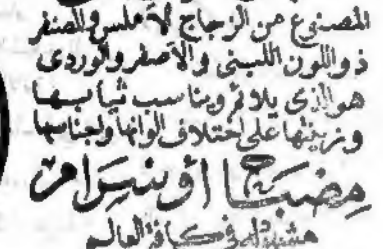 المصنوع من الزجاج الأملس والمصنفر
ذو اللون اللبنى والأصفر والوردى
هو الذى يلائم ويناسب ثيابها
وزينتها على اختلاف ألوانها وأجناسها
مصباح أوسرام
مشهور فى كافة العالم